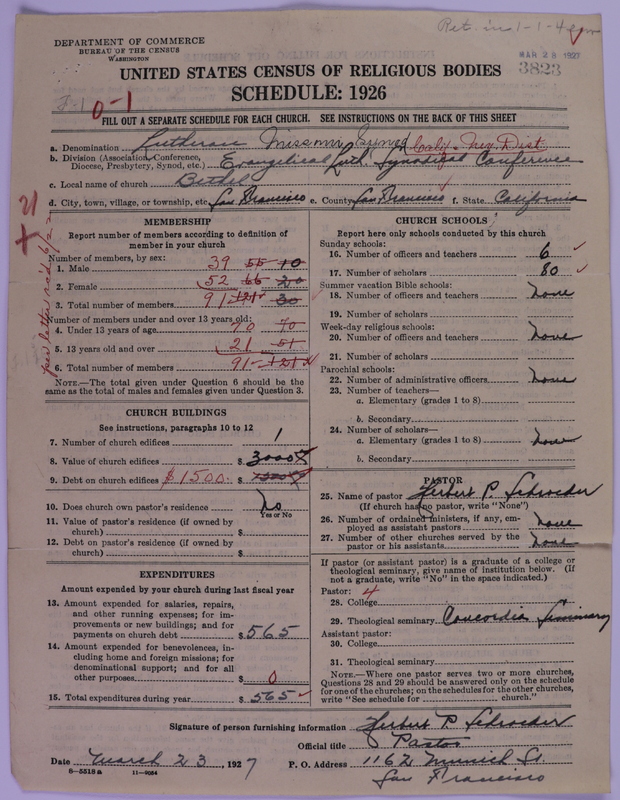 DEPARTMENT OF COMMERCE
BUREAU OF THE CENSUS
WASHINGTON
Ret. in 1-1-4
MAR 28 1927
3823
UNITED STATES CENSUS OF RELIGIOUS BODIES
SCHEDULE: 1926
0-1
FILL OUT A SEPARATE SCHEDULE FOR EACH CHURCH. SEE INSTRUCTIONS ON THE BACK OF THIS SHEET
a. Denomination Lutheran Missouri Synod Calif. + Nev. Dist.
b. Division (Association, Conference, Diocese, Presbytery, Synod, etc.) Evangelical Luth. Synodical Conference
c. Local name of church Bethel
d. City, town, village, or township, etc. San Francisco e. County San Francisco f. State California
21
per letter rec'd 6/2
MEMBERSHIP
Report number of members according to definition of member in your church
Number of members, by sex:
1. Male 39 55 10
2. Female 52 66 20
3. Total number of members 91 121 30
Number of members under and over 13 years old:
4. Under 13 years of age 70 70
5. 13 years old and over 21 51
6. Total number of members 91 121
NOTE.—The total given under Question 6 should be the same as the total of males and females given under Question 3.
CHURCH BUILDINGS
See instructions, paragraphs 10 to 12
7. Number of church edifices 1
8. Value of church edifices $ 3000
9. Debt on church edifices $1500. $
10. Does church own pastor's residence No
Yes or No
11. Value of pastor's residence (if owned by church) $
12. Debt on pastor's residence (if owned by church) $
EXPENDITURES
Amount expended by your church during last fiscal year
13. Amount expended for salaries, repairs, and other running expenses; for improvements or new buildings; and for payments on church debt $ 565
14. Amount expended for benevolences, including home and foreign missions; for denominational support; and for all other purposes $ 0
15. Total expenditures during year $ 565
CHURCH SCHOOLS
Report here only schools conducted by this church
Sunday schools:
16. Number of officers and teachers 6
17. Number of scholars 80
Summer vacation Bible schools:
18. Number of officers and teachers None
19. Number of scholars
Week-day religious schools:
20. Number of officers and teachers None
21. Number of scholars
Parochial schools:
22. Number of administrative officers None
23. Number of teachers—
a. Elementary (grades 1 to 8)
b. Secondary
24. Number of scholars—
a. Elementary (grades 1 to 8) None
b. Secondary
PASTOR
25. Name of pastor Herbert P. Schroeder
(If church has no pastor, write "None")
26. Number of ordained ministers, if any, employed as assistant pastors None
27. Number of other churches served by the pastor or his assistants None
If pastor (or assistant pastor) is a graduate of a college or theological seminary, give name of institution below. (If not a graduate, write "No" in the space indicated.)
Pastor: 4
28. College
29. Theological seminary Concordia Seminary
Assistant pastor:
30. College
31. Theological seminary
NOTE.—Where one pastor serves two or more churches, Questions 28 and 29 should be answered only on the schedule for one of the churches; on the schedules for the other churches, write "See schedule for church."
Signature of person furnishing information Herbert P. Schroeder
Official title Pastor
Date March 23, 1927 P. O. Address 1162 Munich St.
8-5518 a 11-9054
San Francisco